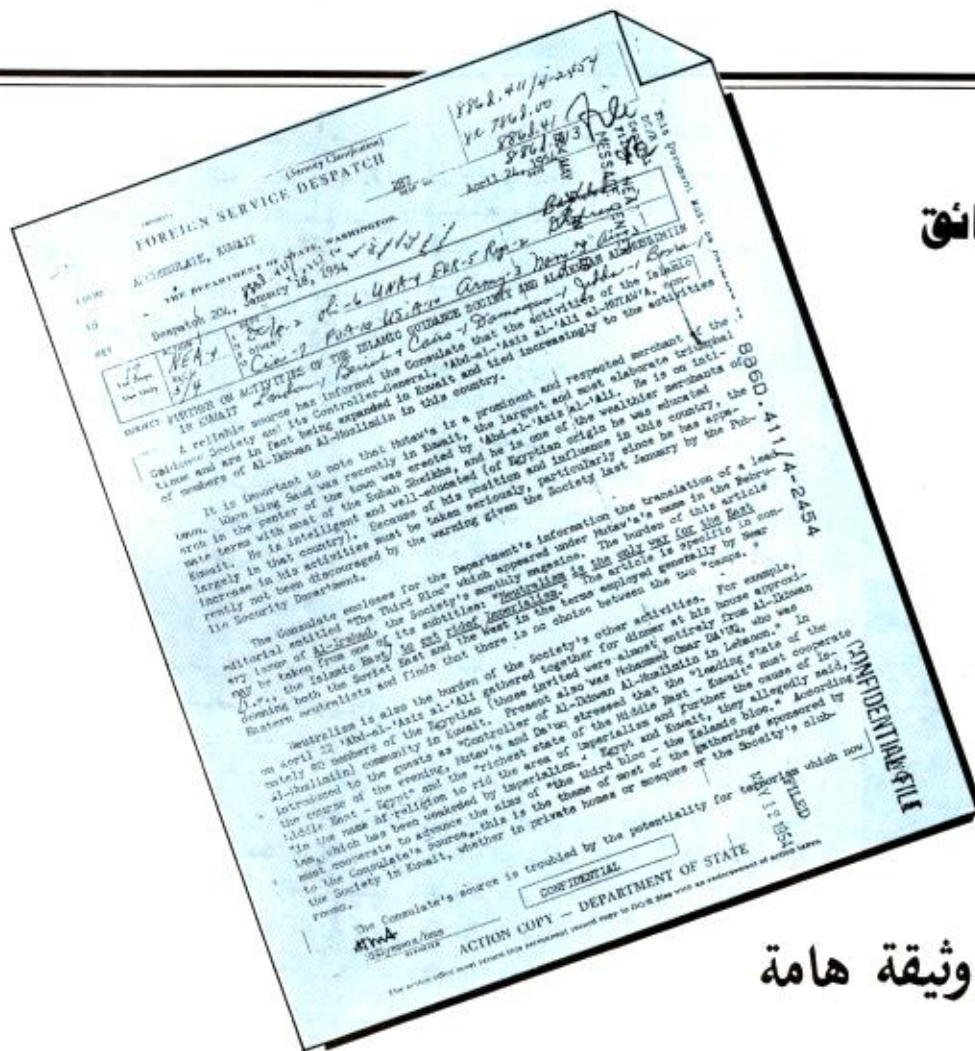 ائق
(Security Classification)
FOREIGN SERVICE DESPATCH
FROM
KUWAIT
TO
THE DEPARTMENT OF STATE, WASHINGTON.
April 24, 1954
REF
Despatch 204, January 18, 1954
MESSAGE CENTER
SUBJECT: FURTHER ON ACTIVITIES OF THE ISLAMIC GUIDANCE SOCIETY AND AL-IKHWAN AL-MUSLIMIIN
IN KUWAIT
A reliable source has informed the Consulate that the activities of the Islamic
Guidance Society and its Controller-General, 'Abd-al-'Aziz al-'Ali al-MUTAW'A, con-
tinue and are in fact being expanded in Kuwait and tied increasingly to the activities
of members of Al-Ikhwan Al-Muslimiin in this country.
It is important to note that Mutaw'a is a prominent and respected merchant of the
town. When King Saud was recently in Kuwait, the largest and most elaborate triumphal
arch in the center of the town was erected by 'Abd-al-'Aziz al-'Ali. He is on inti-
mate terms with most of the Subah Sheikhs, and he is one of the wealthier merchants of
Kuwait. He is intelligent and well-educated (of Egyptian origin he was educated
largely in that country). Because of his position and influence in this country, the
increase in his activities must be taken seriously, particularly since he has appa-
rently not been discouraged by the warning given the Society last January by the Pub-
lic Security Department.
The Consulate encloses for the Department's information the translation of a lead
editorial entitled "The Third Bloc" which appeared under Mutaw'a's name in the Febru-
ary issue of Al-Irshad, the Society's monthly magazine. The burden of this article
may be taken from one of its subtitles: "Neutralism is the only way for the East
the Islamic East) to get rid of Imperialism." The article is specific in con-
demning both the Soviet East and the West in the terms employed generally by Near
Eastern neutralists and finds that there is no choice between the two "camps."
Neutralism is also the burden of the Society's other activities. For example,
on April 22 'Abd-al-'Aziz al-'Ali gathered together for dinner at his house approxi-
mately 80 members of the Egyptian (those invited were almost entirely from Al-Ikhwan
Al-Muslimiin) community in Kuwait. Present also was Mohammed Omar DA'UQ, who was
introduced to the guests as "Controller of Al-Ikhwan Al-Muslimiin in Lebanon." In
the course of the evening, Mutaw'a and Da'uq stressed that the "leading state of the
Middle East - Egypt" and the "richest state of the Middle East - Kuwait" must cooperate
"in the name of religion to rid the area of imperialism and further the cause of Is-
lam, which has been weakened by imperialism." Egypt and Kuwait, they allegedly said,
must cooperate to advance the aims of "the third bloc - the Islamic bloc." According
to the Consulate's source, this is the theme of most of the gatherings sponsored by
the Society in Kuwait, whether in private homes or mosques or the Society's club-
rooms.
The Consulate's source is troubled by the potentiality for terrorism which now
CONFIDENTIAL
ACTION COPY — DEPARTMENT OF STATE
886D.411/4-2454
CONFIDENTIAL FILE
FILED
MAY 12 1954
وثيقة هامة